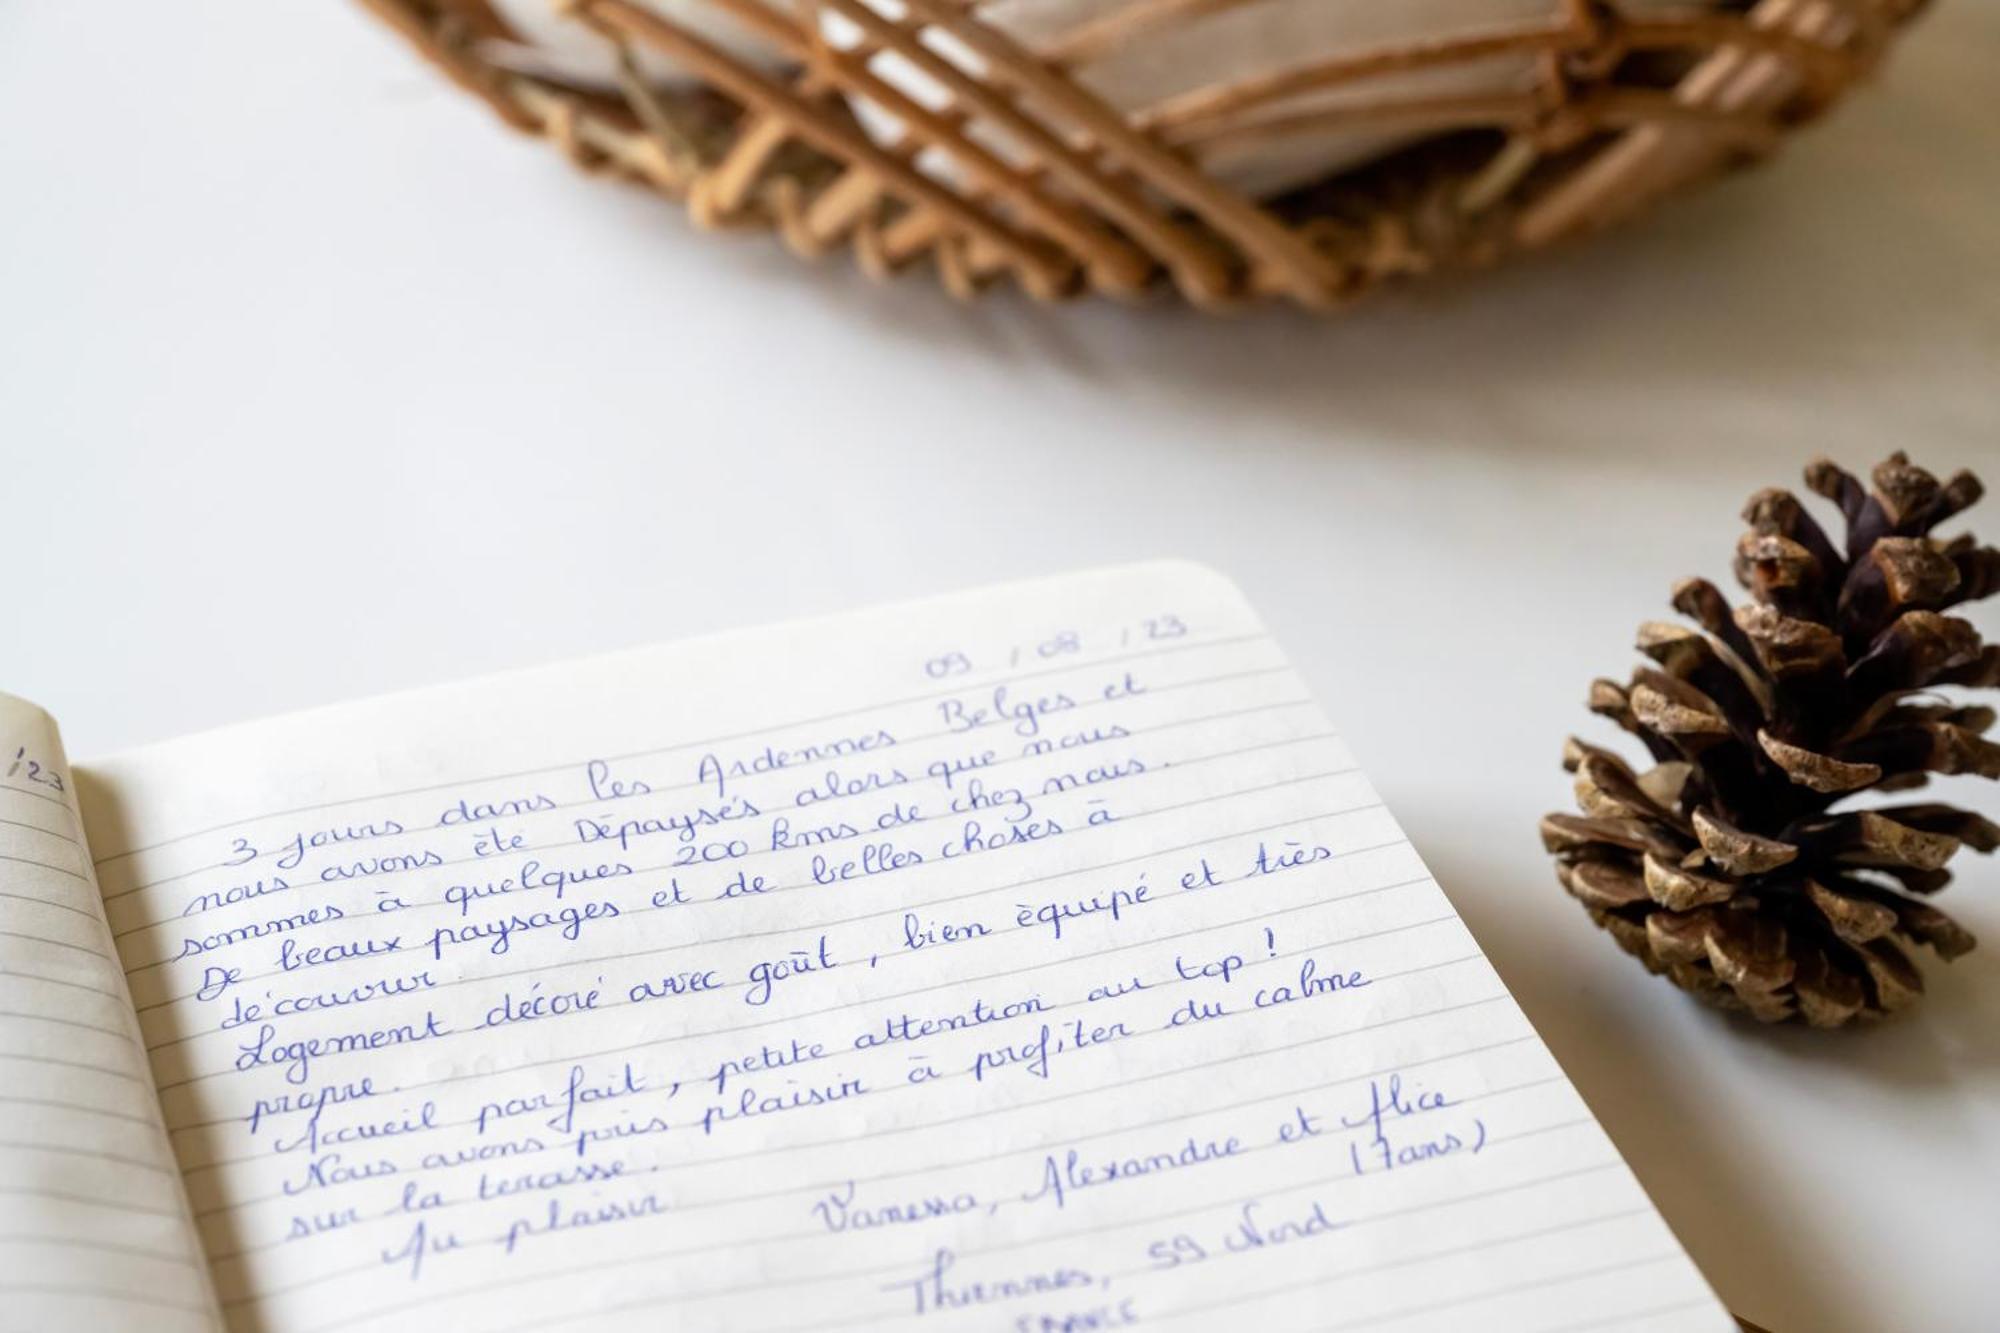 /23
09 / 08 / 23
3 jours dans les Ardennes Belges et
nous avons été Dépaysés alors que nous
sommes à quelques 200 kms de chez nous.
De beaux paysages et de belles choses à
découvrir.
Logement décoré avec goût, bien équipé et très
propre.
Accueil parfait, petite attention au top !
Nous avons pris plaisir à profiter du calme
sur la terasse.
Au plaisir
Vanessa, Alexandre et Alice
(7ans)
Thiennes, 59 Nord
FRANCE